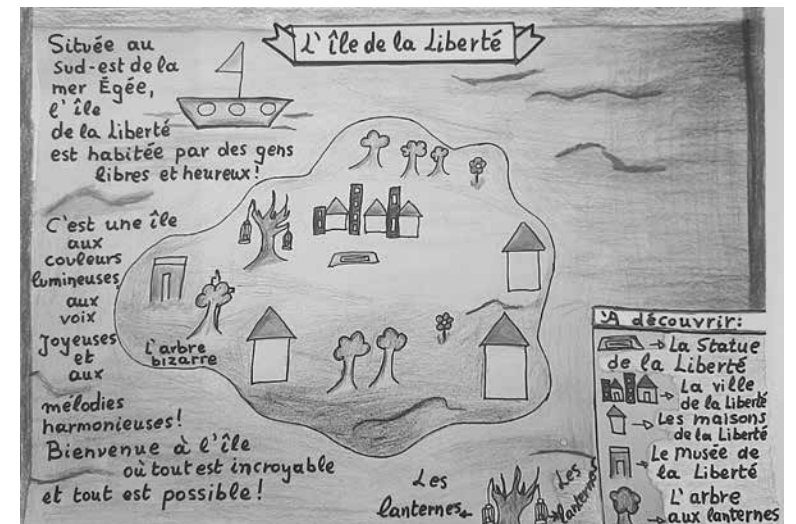 L'île de la Liberté
Située au
Sud-est de la
mer Égée,
l'île
de la Liberté
est habitée par des gens
libres et heureux!
C'est une île
aux
couleurs
lumineuses,
aux
voix
Joyeuses
et
aux
mélodies
harmonieuses!
Bienvenue à l'île
où tout est incroyable
et tout est possible!
L'arbre
bizarre
Les
lanternes
Les
lanternes
À découvrir:
La Statue
de la Liberté
La ville
de la Liberté
Les maisons
de la Liberté
Le musée de
la Liberté
L'arbre
aux lanternes